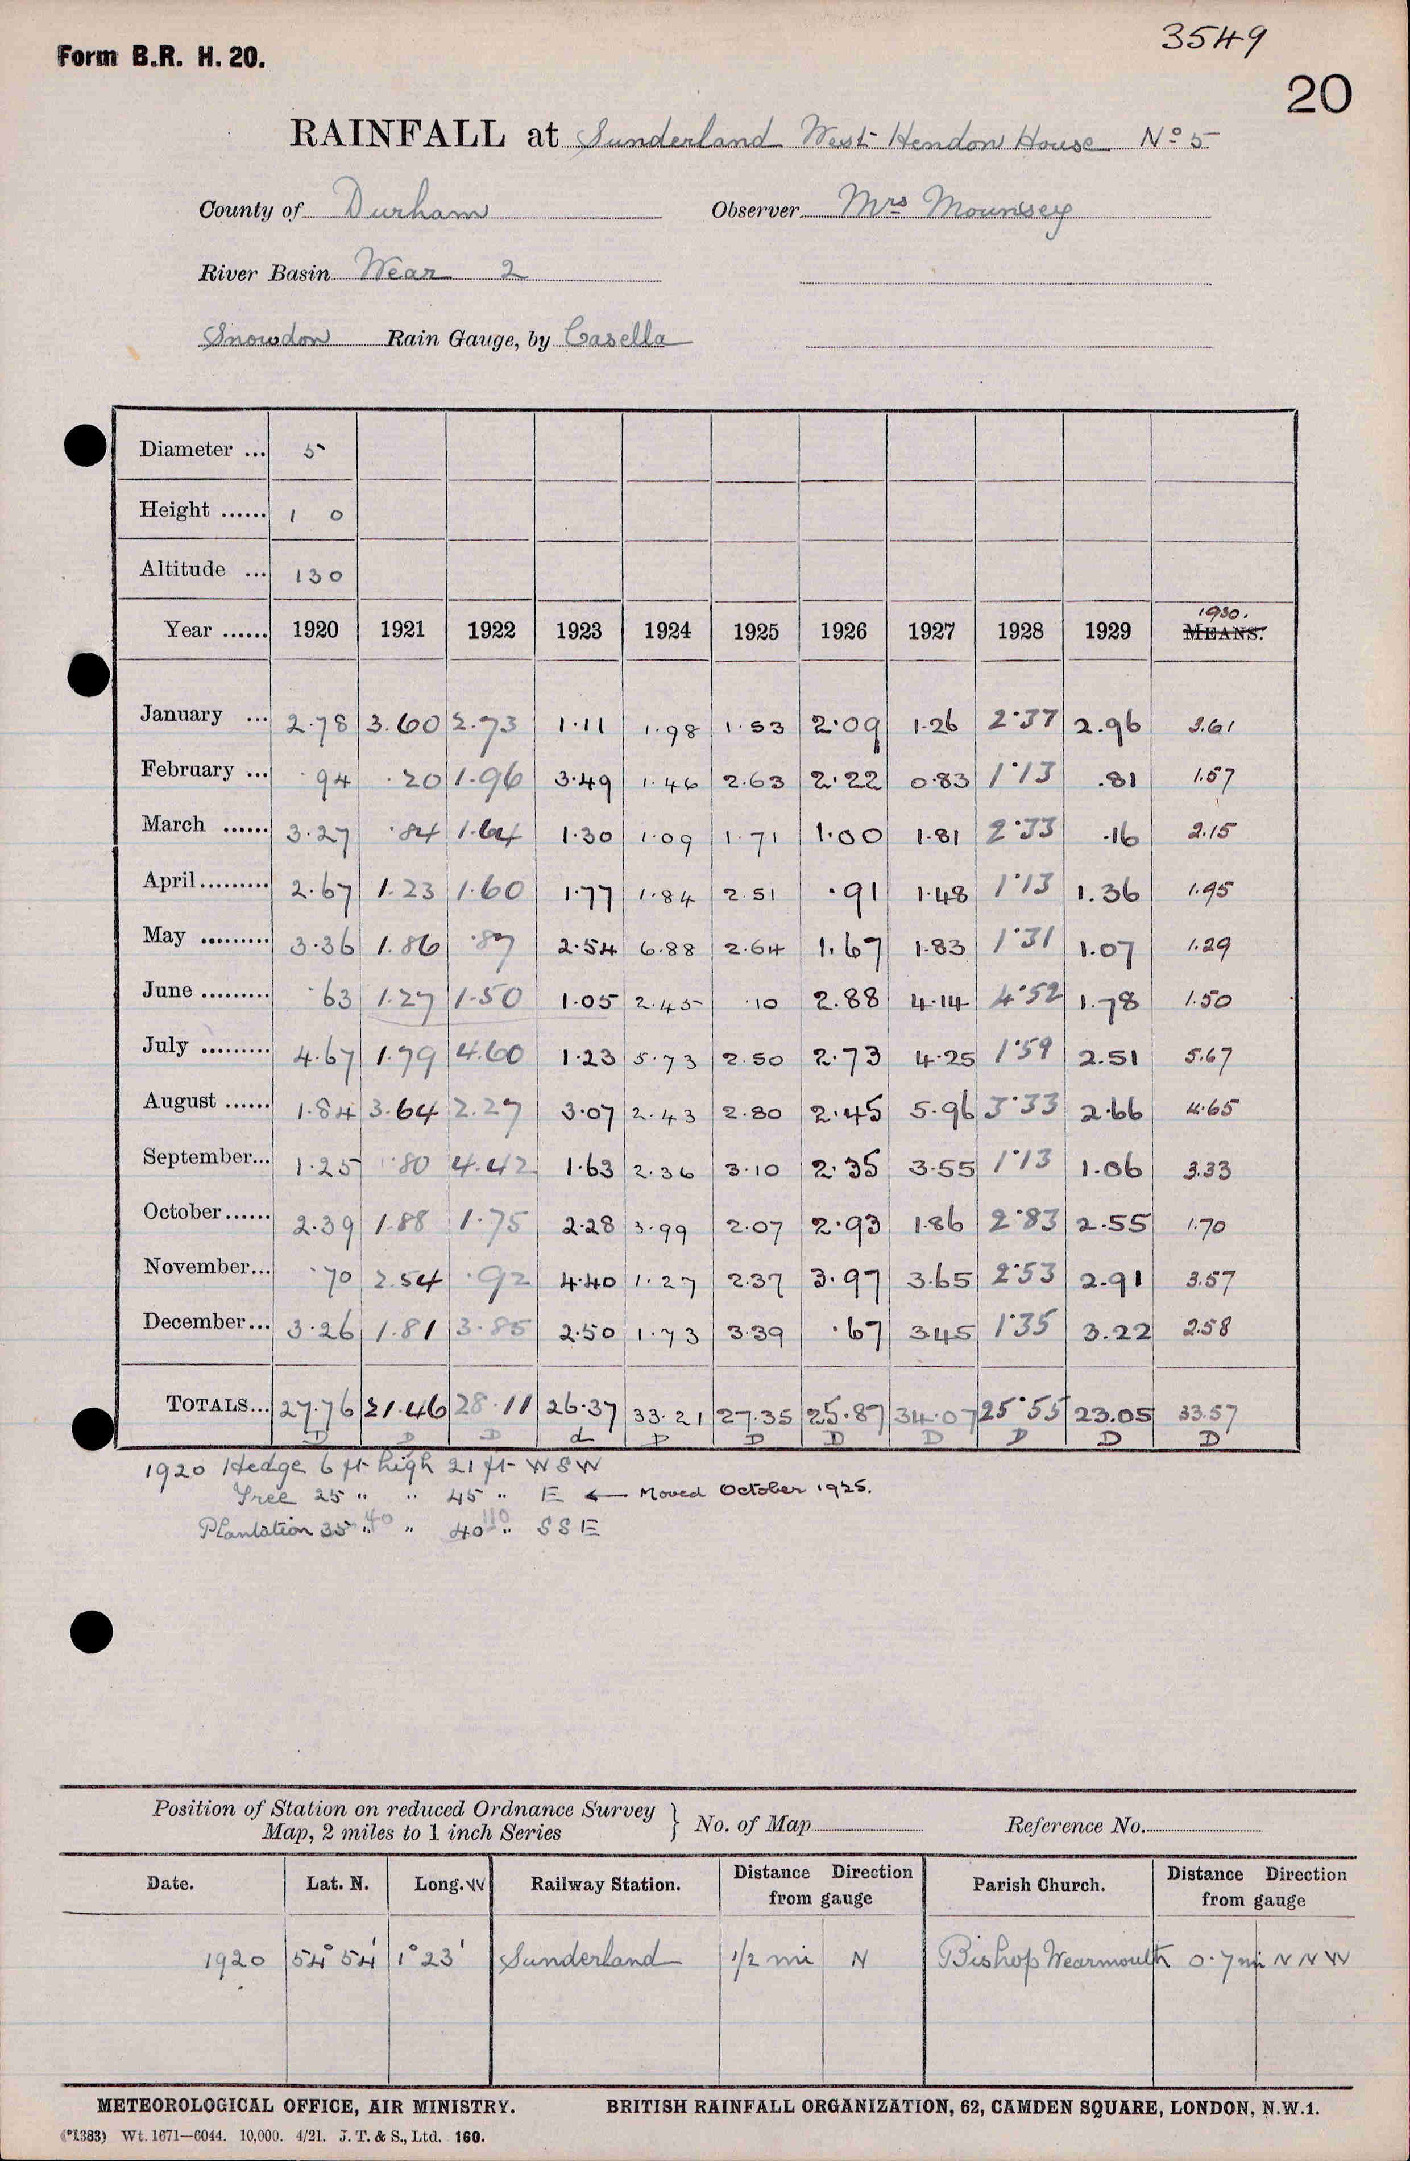 3549
Form B.R. H. 20.
20
RAINFALL at Sunderland West Hendon House No 5
County of Durham Observer Mrs Mounsey
River Basin Wear 2
Snowdon Rain Gauge, by Casella
Diameter ... 5
Height ...... 1 0
Altitude ... 130
1930.
Year ...... 1920 1921 1922 1923 1924 1925 1926 1927 1928 1929 MEANS.
January ... 2.78 3.60 2.73 1.11 1.98 1.53 2.09 1.26 2.37 2.96 3.61
February ... .94 .20 1.96 3.49 1.46 2.63 2.22 0.83 1.13 .81 1.57
March ...... 3.27 .84 1.64 1.30 1.09 1.71 1.00 1.81 2.33 .16 2.15
April ......... 2.67 1.23 1.60 1.77 1.84 2.51 .91 1.48 1.13 1.36 1.95
May ......... 3.36 1.86 .87 2.54 6.88 2.64 1.67 1.83 1.31 1.07 1.29
June ......... .63 1.27 1.50 1.05 2.45 .10 2.88 4.14 4.52 1.78 1.50
July ......... 4.67 1.79 4.60 1.23 5.73 2.50 2.73 4.25 1.59 2.51 5.67
August ...... 1.84 3.64 2.27 3.07 2.43 2.80 2.45 5.96 3.33 2.66 4.65
September... 1.25 .80 4.42 1.63 2.36 3.10 2.35 3.55 1.13 1.06 3.33
October ...... 2.39 1.88 1.75 2.28 3.99 2.07 2.93 1.86 2.83 2.55 1.70
November... .70 2.54 .92 4.40 1.27 2.37 3.97 3.65 2.53 2.91 3.57
December... 3.26 1.81 3.85 2.50 1.73 3.39 .67 3.45 1.35 3.22 2.58
TOTALS... 27.76 21.46 28.11 26.37 33.21 27.35 25.87 34.07 25.55 23.05 33.57
D D D d D D D D D D D
1920 Hedge 6 ft high 21 ft WSW
Tree 25 " " 45 " E ← Moved October 1925.
Plantation 35 " 40 " 40 110 " SSE
Position of Station on reduced Ordnance Survey
Map, 2 miles to 1 inch Series } No. of Map Reference No.
Date. Lat. N. Long. W Railway Station. Distance Direction from gauge Parish Church. Distance Direction from gauge
1920 54° 54' 1° 23' Sunderland 1/2 mi N Bishop Wearmouth 0.7 mi NNW
METEOROLOGICAL OFFICE, AIR MINISTRY. BRITISH RAINFALL ORGANIZATION, 62, CAMDEN SQUARE, LONDON, N.W.1.
(*1383) Wt. 1671—6044. 10,000. 4/21. J. T. & S., Ltd. 160.